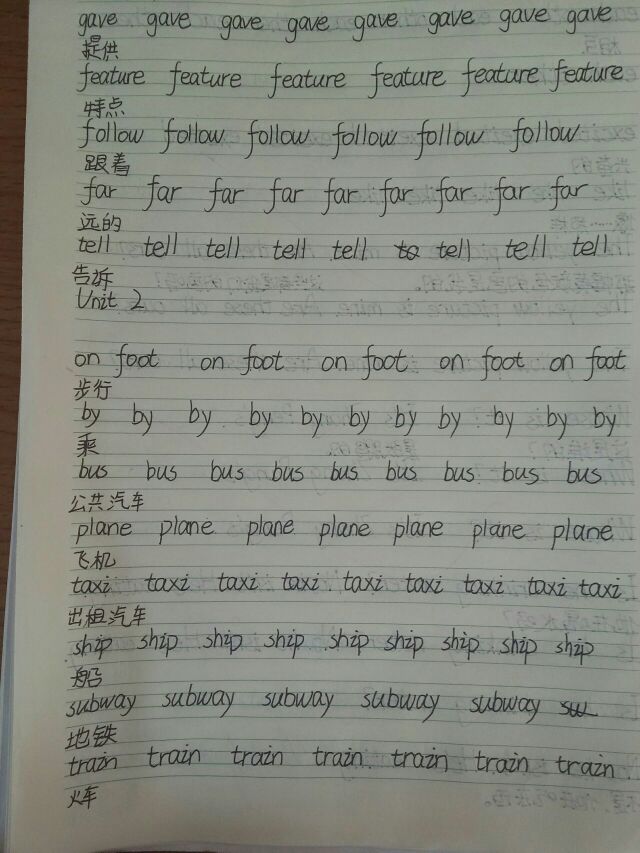 gave gave gave gave gave gave gave gave
提供
feature feature feature feature feature feature
特点
follow follow follow follow follow follow
跟着
far far far far far far far far far
远的
tell tell tell tell tell to tell tell tell
告诉
Unit 2
on foot on foot on foot on foot on foot
步行
by by by by by by by by by by
乘
bus bus bus bus bus bus bus bus bus
公共汽车
plane plane plane plane plane plane plane
飞机
taxi taxi taxi taxi taxi taxi taxi taxi taxi
出租汽车
ship ship ship ship ship ship ship ship ship
船
subway subway subway subway subway su
地铁
train train train train train train train
火车